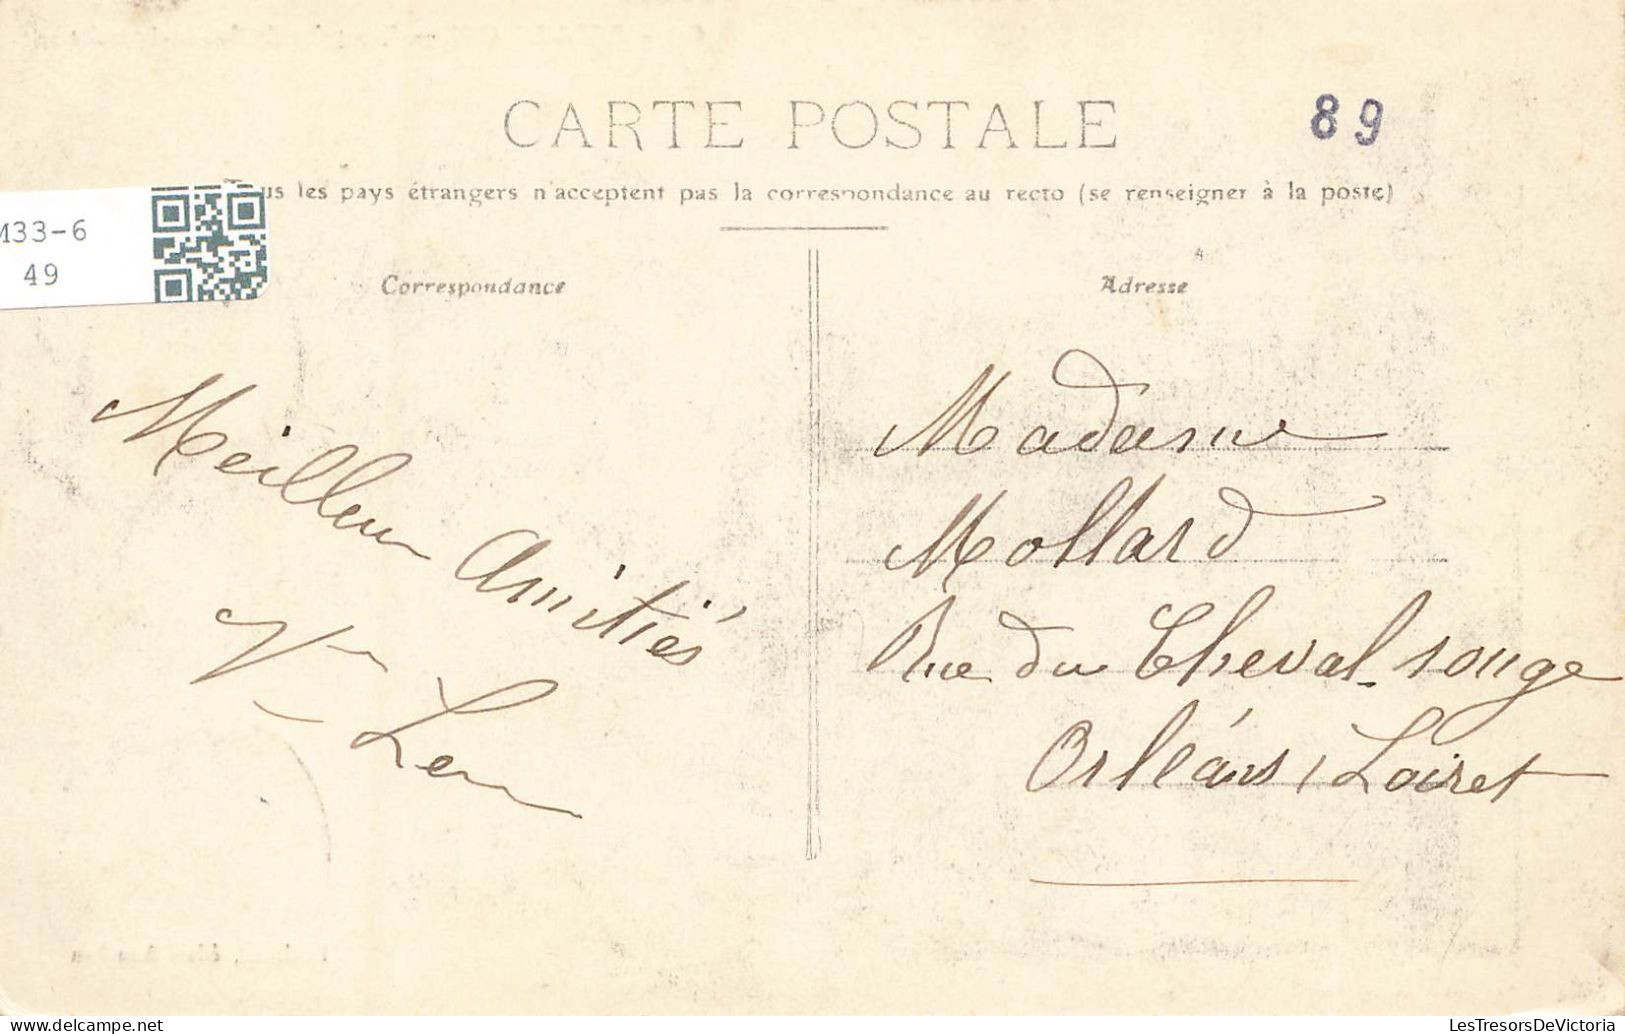 CARTE POSTALE
89
us les pays étrangers n'acceptent pas la correspondance au recto (se renseigner à la poste)
M33-6
49
Correspondance
Meilleur Amitiés
Adresse
Madame
Mollard
Rue du Cheval-rouge
Orléans, Loiret
LesTresorsDeVictoria